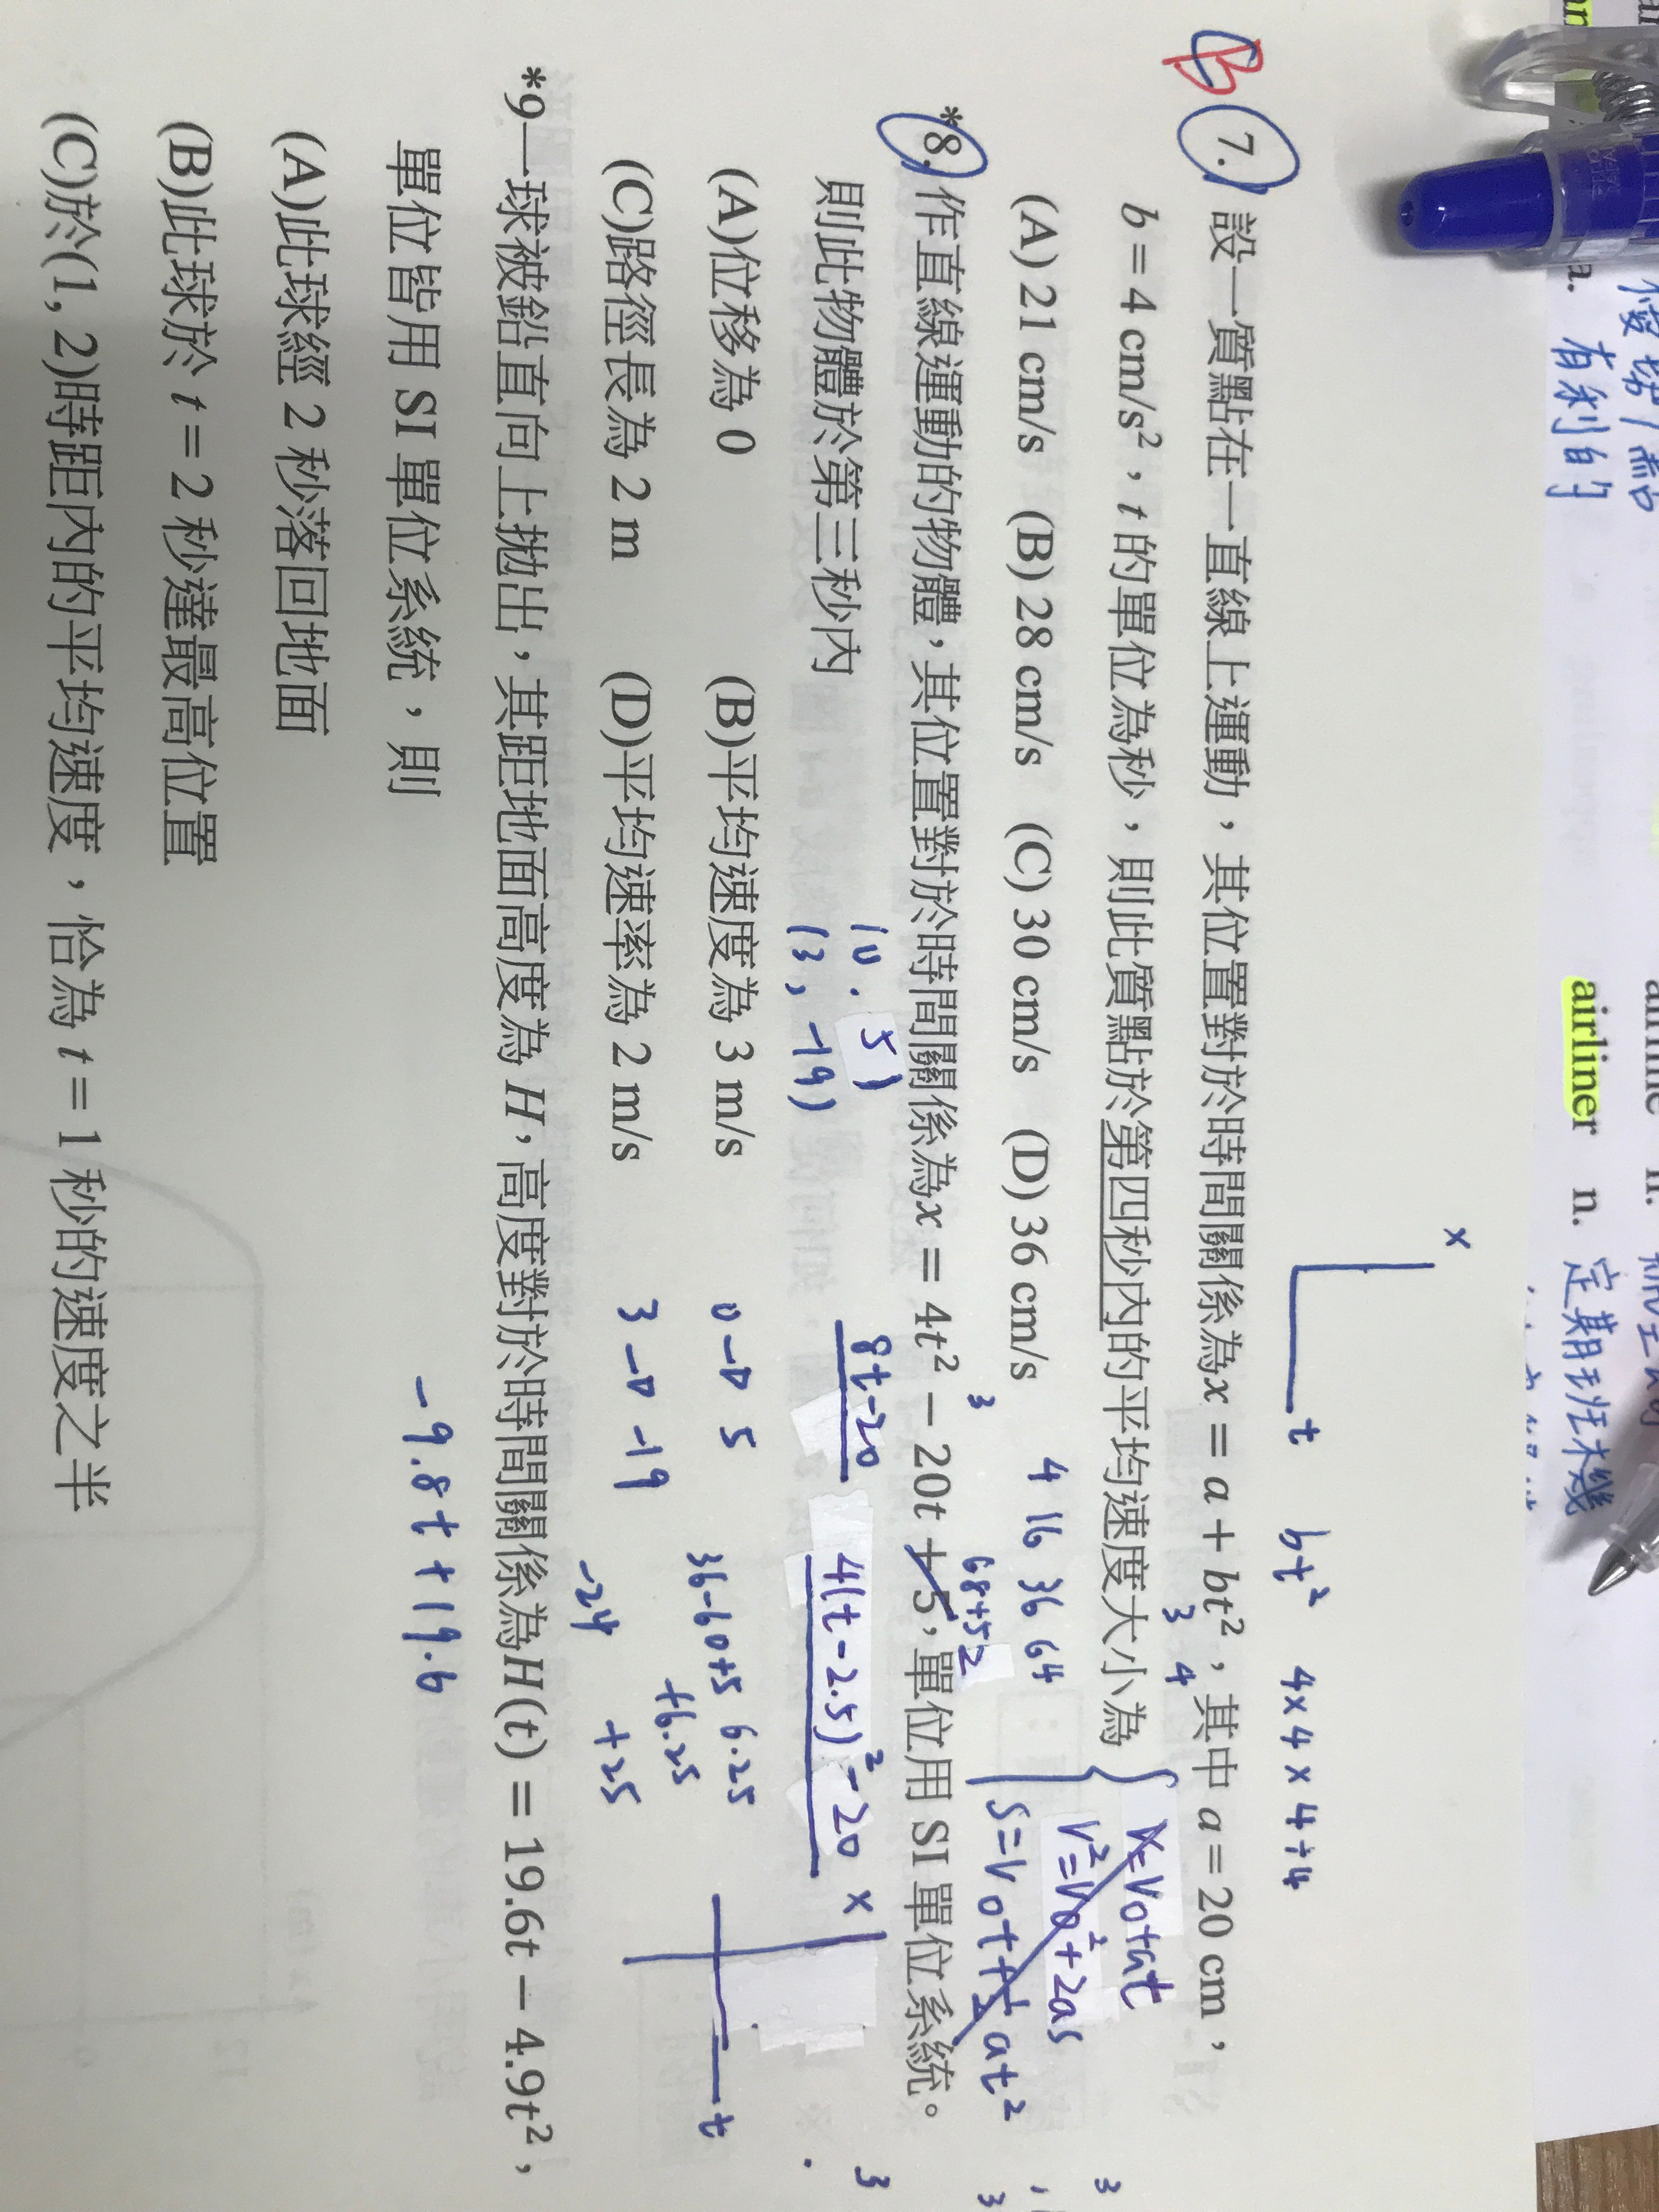 有利的
airliner n. 定期班機
x
t
bt² 4×4×4÷4
B
7. 設一質點在一直線上運動，其位置對於時間關係為x = a + bt²，其中 a = 20 cm，
3 4
b = 4 cm/s²，t 的單位為秒，則此質點於第四秒內的平均速度大小為
x=v₀+at
v²=v₀²+2as
s=v₀t+½at²
(A) 21 cm/s (B) 28 cm/s (C) 30 cm/s (D) 36 cm/s
4 16 36 64
3
68+52
*8. 作直線運動的物體，其位置對於時間關係為x = 4t² − 20t + 5，單位用 SI 單位系統。
則此物體於第三秒內
(0, 5)
(3, -19)
8t-20
4(t-2.5)²-20
x
t
(A)位移為 0 (B)平均速度為 3 m/s
0 → 5
36-60+5 6.25
+6.25
(C)路徑長為 2 m (D)平均速率為 2 m/s
3 → -19
-24 +25
*9一球被鉛直向上拋出，其距地面高度為 H，高度對於時間關係為H(t) = 19.6t − 4.9t²，
單位皆用 SI 單位系統，則
-9.8t+19.6
(A)此球經 2 秒落回地面
(B)此球於 t = 2 秒達最高位置
(C)於(1, 2)時距內的平均速度，恰為 t = 1 秒的速度之半